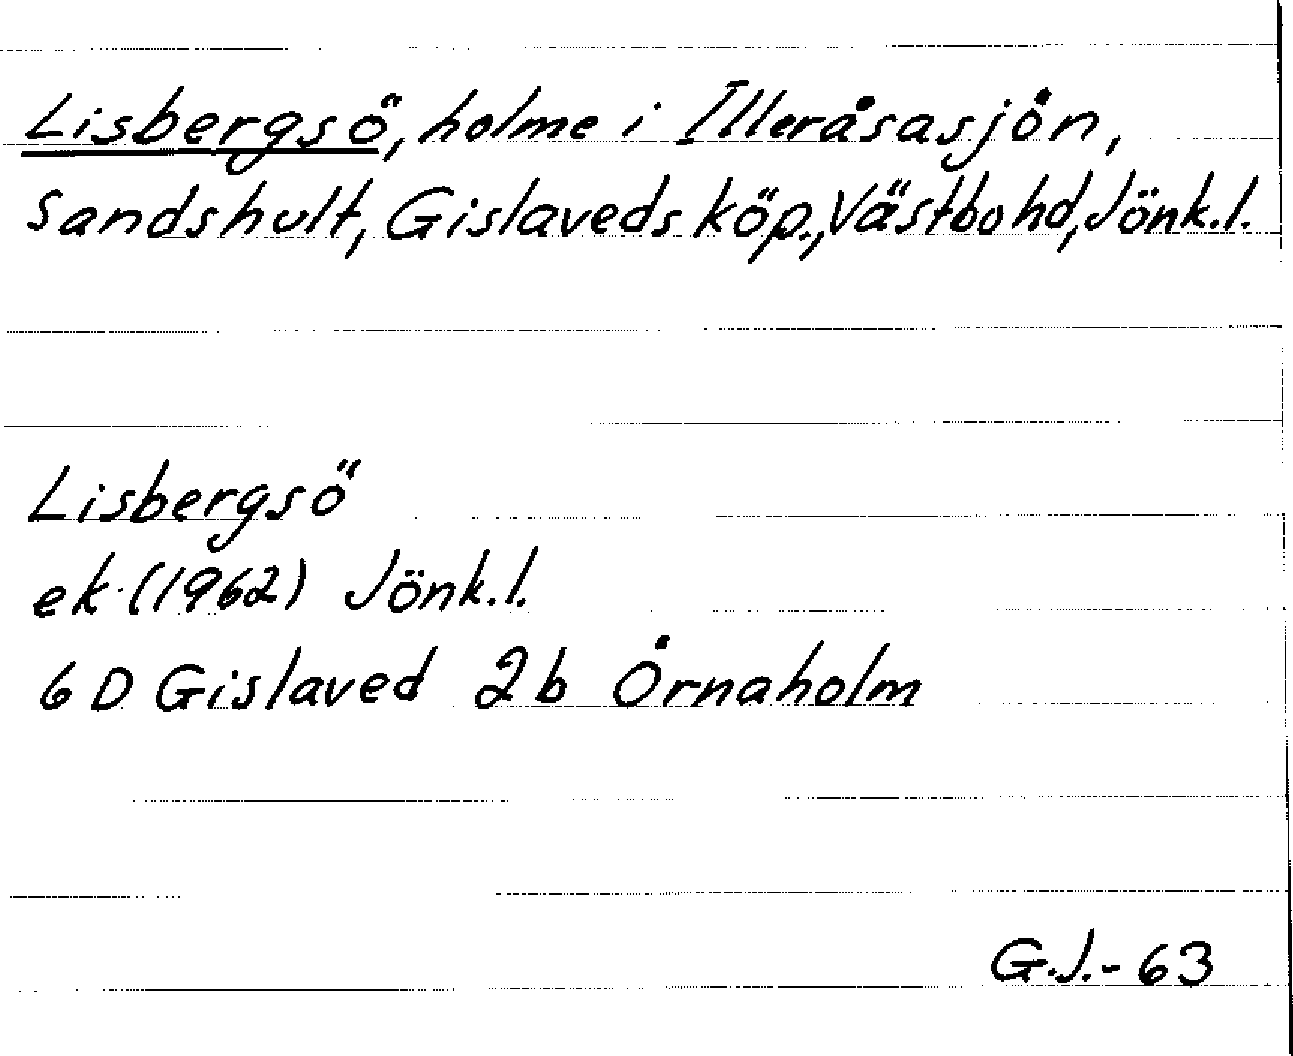 Lisbergsö, holme i Illeråsasjön,
Sandshult, Gislaveds köp., Västbo hd, Jönk.l.
Lisbergsö
ek (1962) Jönk.l.
6 D Gislaved 2b Örnaholm
G.J.-63